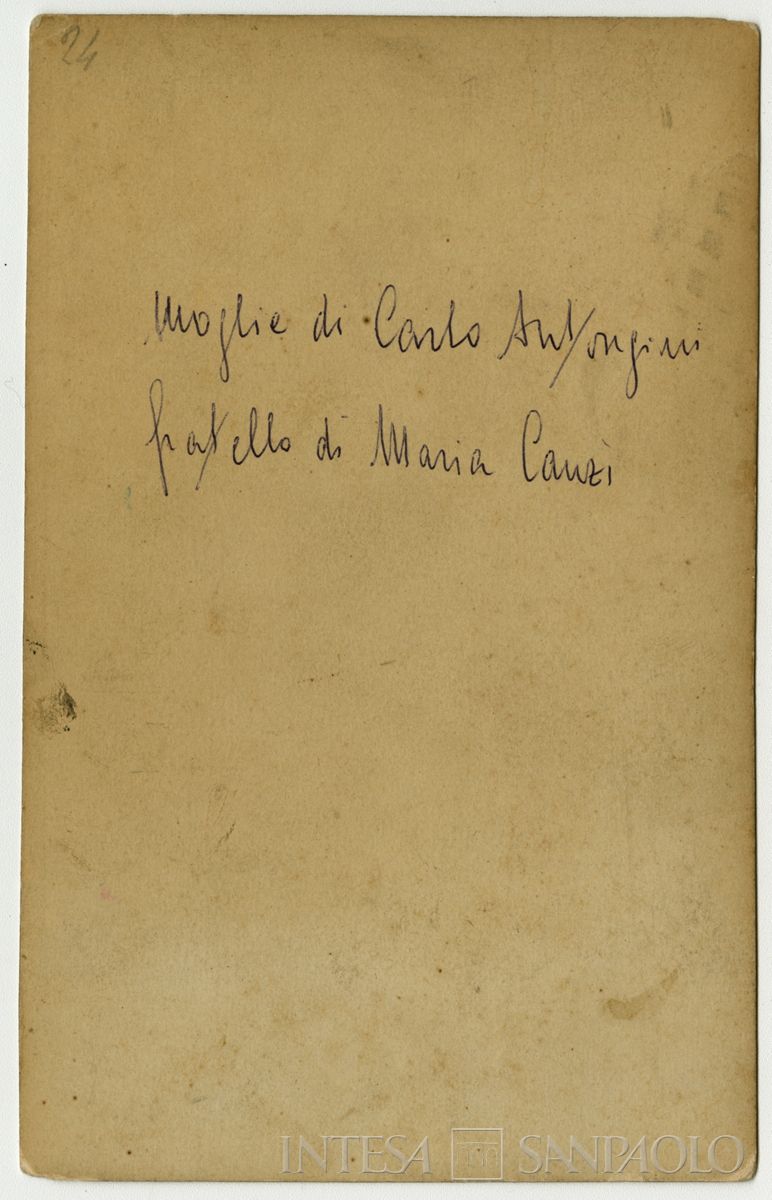 24
Moglie di Carlo Antongini
fratello di Maria Canzi
INTESA SANPAOLO